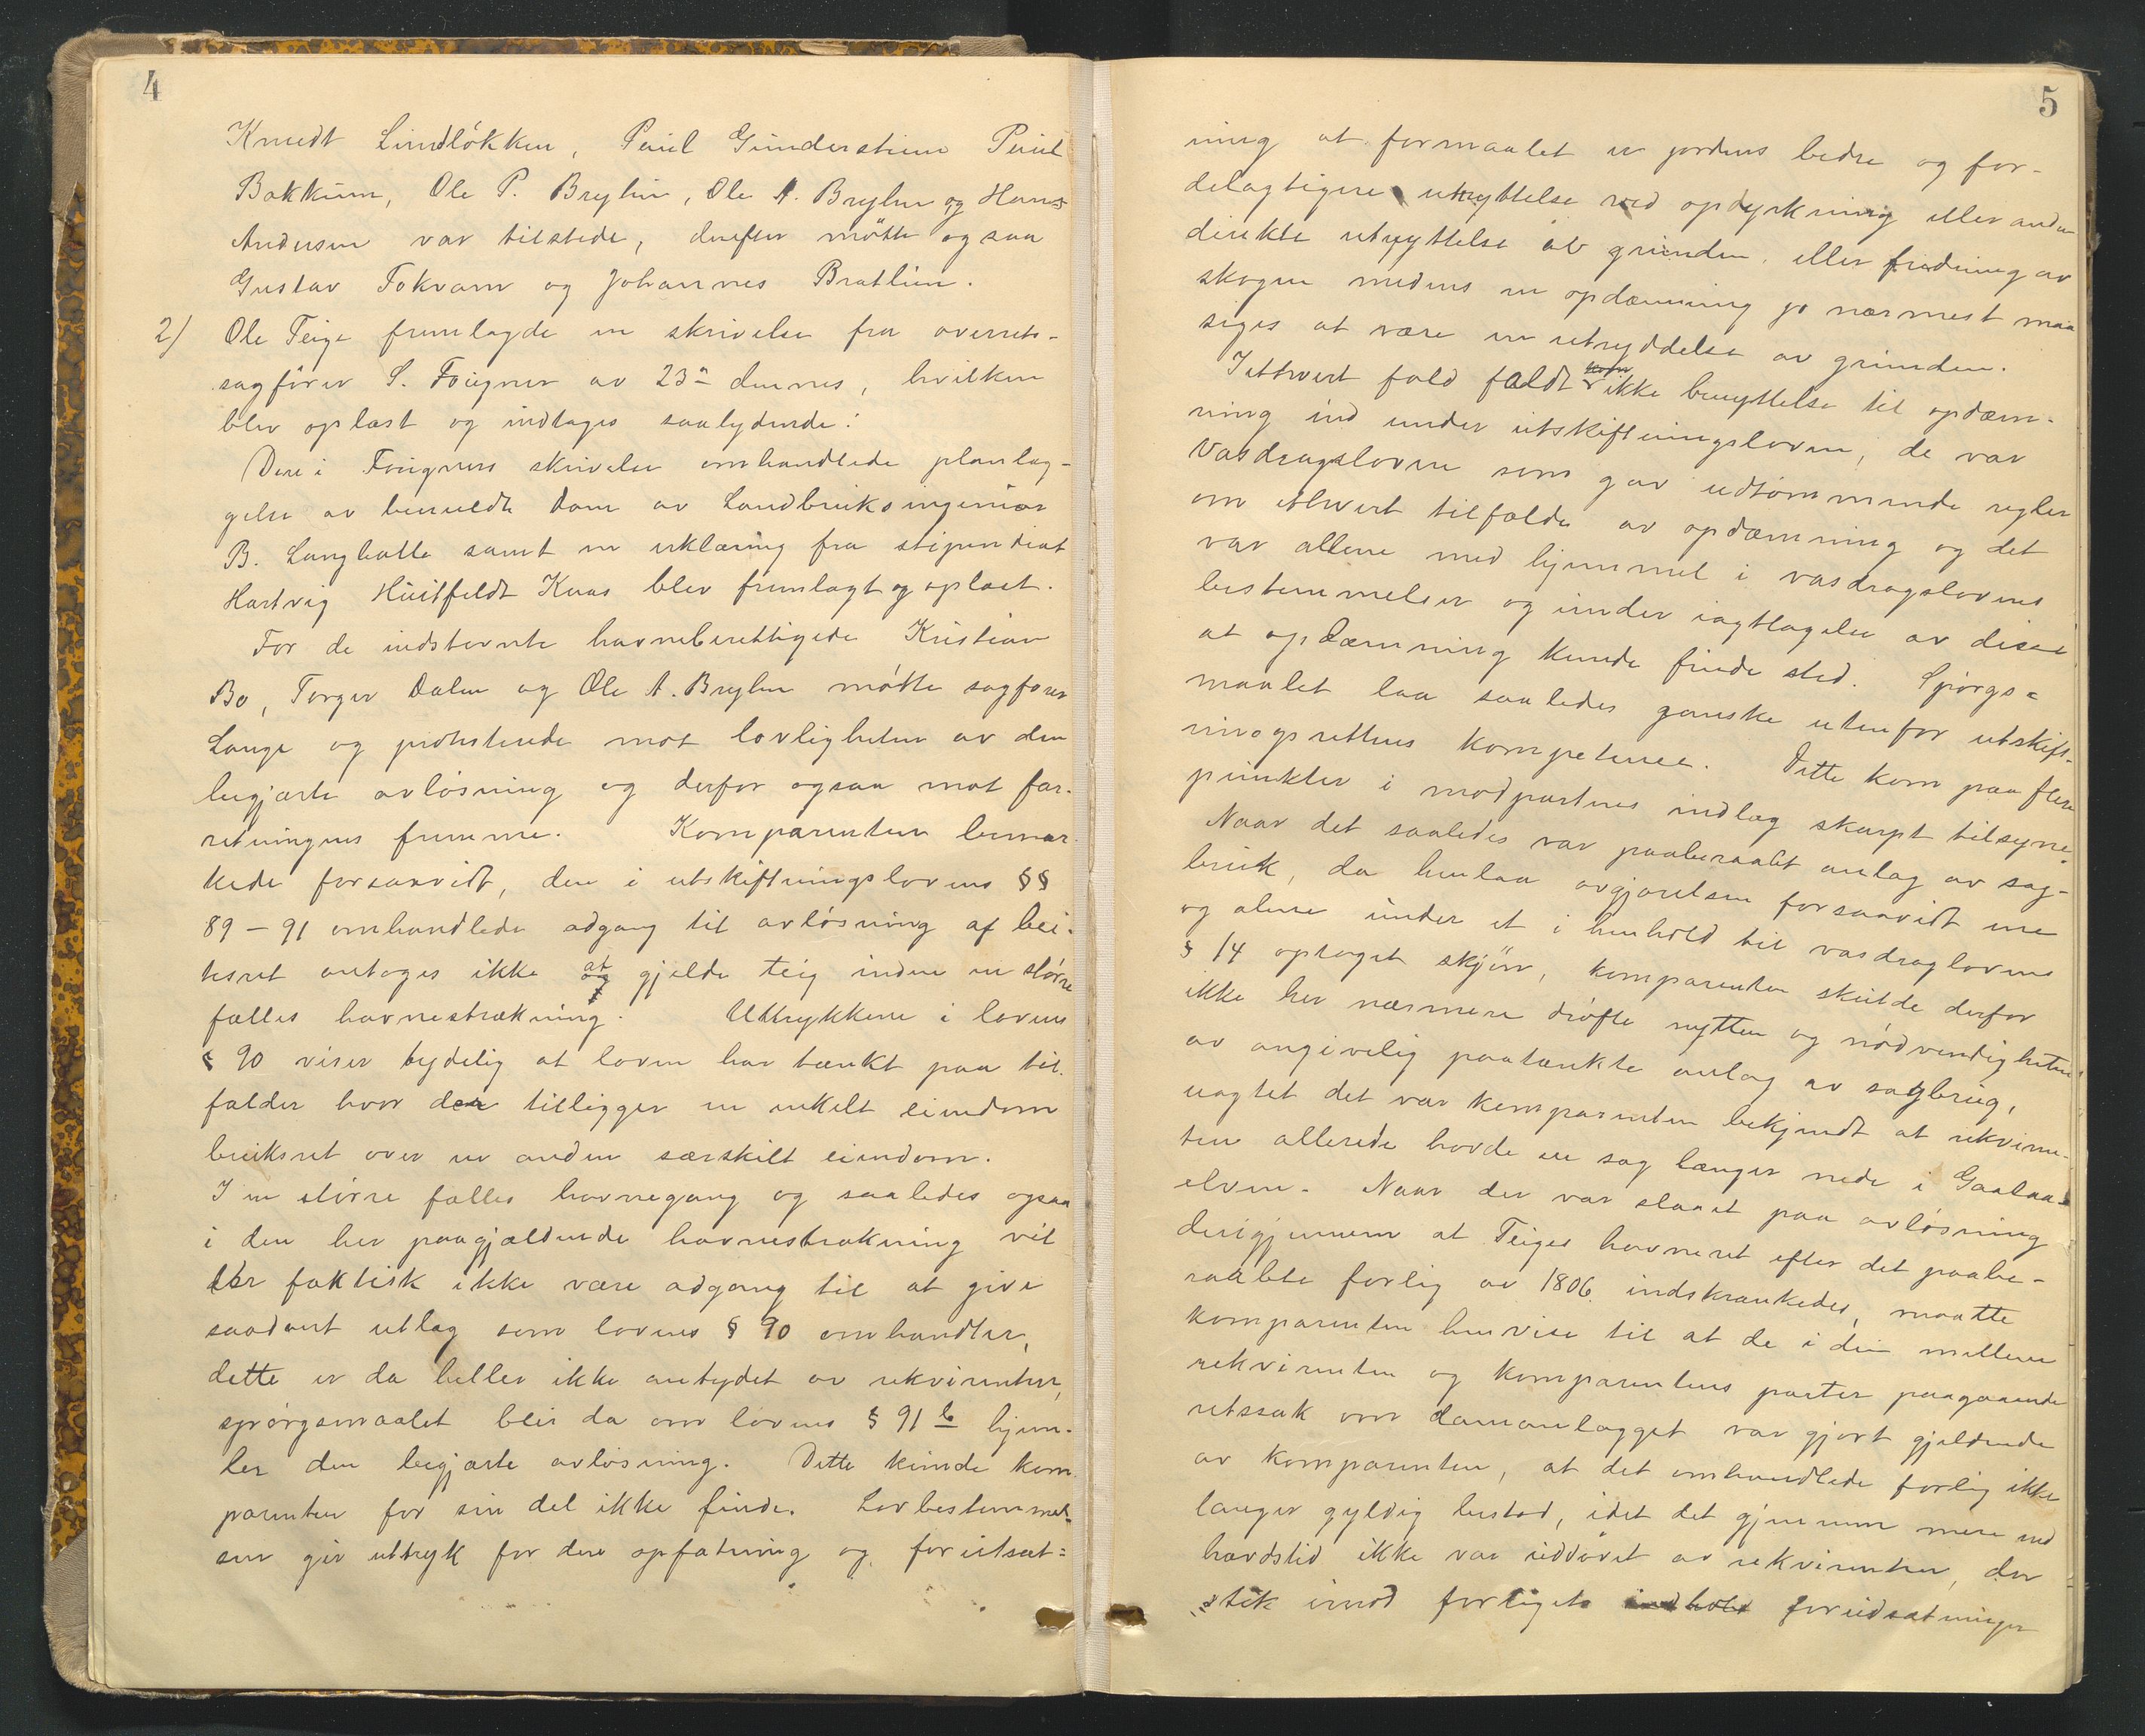 4
Knudt Lindløkken, Paul Gunderstuen Paul
Bakkum, Ole P. Brylin, Ole A. Brylin og Hans
Andersen var tilstede, derefter møtte ogsaa
Gustav Fokvam og Johannes Bratlien.
2) Ole Teige fremlagde en skrivelse fra overrets-
sagfører S. Fougner av 23de dennes, hvilken
blev oplæst og indtages saalydende:
Den i Fougners skrivelse omhandlede planlæg-
gelse av benævnte dam av Landbruksingeniør
B. Langballe samt en erklæring fra stipendiat
Hartvig Huitfeldt Kaas blev fremlagt og oplæst.
For de indstevnte havneberettigede Kristian
Bø, Torger Dalen og Ole A. Brylin møtte sagfører
Lange og protesterede mot lovligheten av den
begjærte avløsning og derfor ogsaa mot for-
retningens fremme. Komparenten bemær-
kede forsaavidt, den i utskiftningslovens §§
89 – 91 omhandlede adgang til avløsning af bei-
tesret antages ikke at gjelde teig inden en større
fælles havnestrækning. Uttrykkene i lovens
§ 90 viser tydelig at loven har tænkt paa til-
fælder hvor der tilligger en enkelt eiendom
bruksret over en anden særskilt eiendom.
I en større fælles havnegang og saaledes ogsaa
i den her paagjældende havnestrækning vil
der faktisk ikke være adgang til at give
saadant utlæg som lovens § 90 omhandler,
dette er da heller ikke antydet av rekvirenten,
spørgsmaalet blir da om lovens § 91 b hjem-
ler den begjærte avløsning. Dette kunde kom-
parenten for sin del ikke finde. Lovbestemmel-
sen gir uttryk for den opfatning og forutsæt=
5
ning at formaalet er jordens bedre og for-
delagtigere utnyttelse ved opdyrkning eller anden
direkte utnyttelse av grunden eller fredning av
skogen medens en opdæmning jo nærmest maa
siges at være en utryddelse av grunden.
Iethvert fald faldt ikke benyttelse til opdæm-
ning ind under utskiftningsloven, de var
Vasdragsloven som gav udtømmende regler
om ethvert tilfælde av opdæmning og det
var allene med hjemmel i vasdragslovens
bestemmelser og under iagttagelse av disse
at opdæmning kunde finde sted. Spørgs=
maalet laa saaledes ganske utenfor utskift-
ningsrettens kompetence. Dette kom paa flere
punkter i modpartens indlæg skarpt tilsyne.
Naar det saaledes var paaberaabt anlæg av sag-
bruk, da henlaa avgjørelsen forsaavidt ene
og alene under et i henhold til vasdraglovens
§ 14 optaget skjøn, komparenten skulde derfor
ikke her nærmere drøfte nytten og nødvendigheten
av angivelig paatænkte anlæg av sagbrug,
uagtet det var komparenten bekjendt at rekviren-
ten allerede havde en sag længer nede i Gaalaa-
elven. Naar der var slaaet paa avløsning
derigjennem at Teiges havneret efter det paabe-
raabte forlig av 1806 indskrænkedes, maatte
komparenten henvise til at de i den mellem
rekvirenten og komparentens parter paagaaende
retssak om damanlægget var gjort gjeldende
av komparenten, at det omhandlede forlig ikke
længer gyldig bestod, idet det gjennem mere end
hævdstid ikke var uddøvet av rekvirenten, der
stik imod forligets indhold forudsætninger